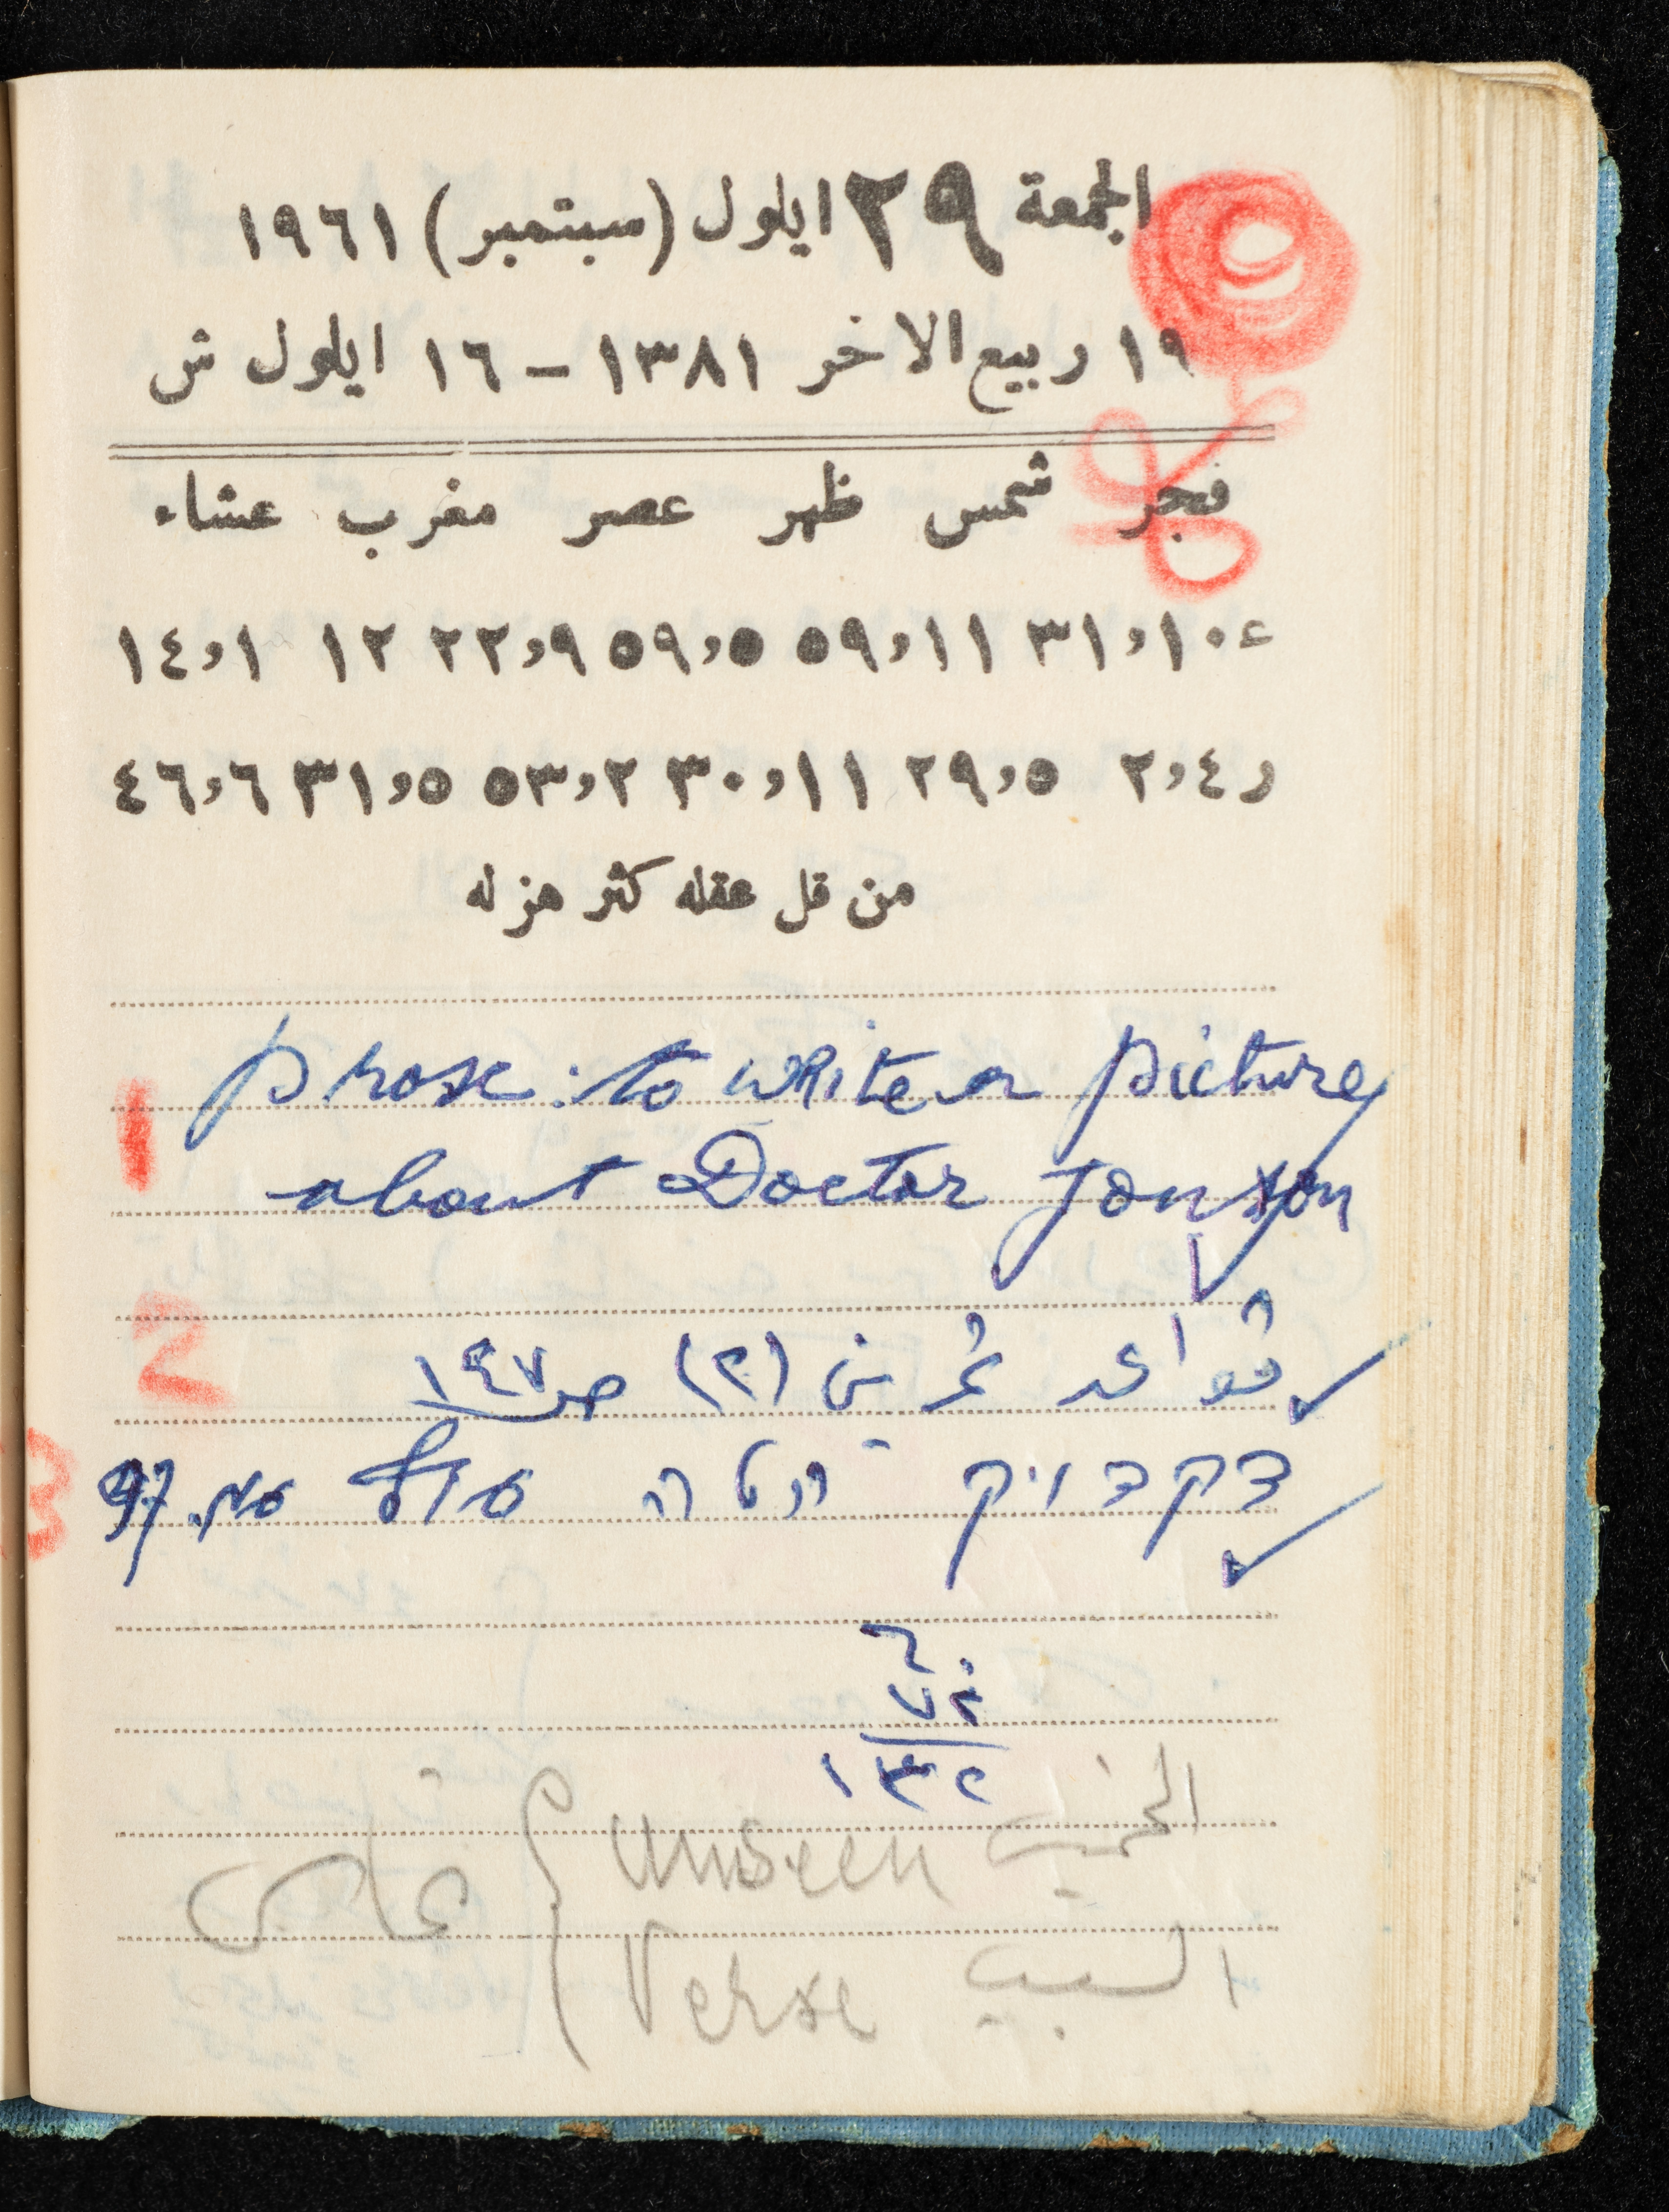 الجمعة ٢٩ ايلول (سبتمبر) ١٩٦١
١٩ ربيع الاخر ١٣٨١ – ١٦ ايلول ش
فجر شمس ظهر عصر مغرب عشاء
ع ١٠،٣١ ١١،٥٩ ٥،٥٩ ٩،٢٢ ١٢ ١،١٤
ر ٤،٢ ٥،٢٩ ١١،٣٠ ٢،٥٣ ٥،٣١ ٦،٤٦
من قل عقله كثر هزله
1 prose: to write a picture
about Doctor Jonson
2 قواعد تمرين (٢) ص ١٤٧
3 דקדוק 97
٦
٧٤
١٣٢
الخميس unseen
السبت Verse